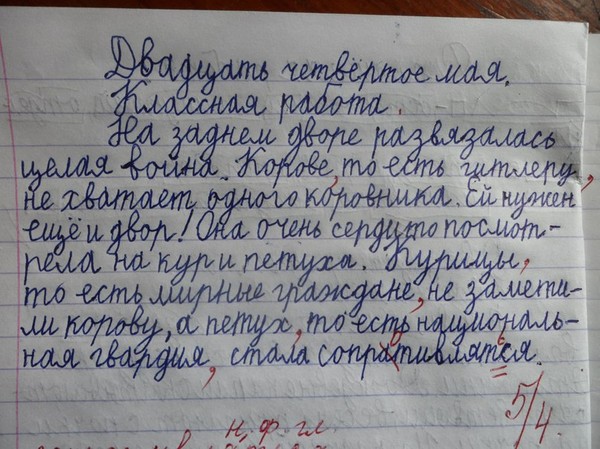 Двадцать четвёртое мая.
Классная работа.
На заднем дворе развязалась
целая война. Корове, то есть гитлеру,
не хватает одного коровника. Ей нужен
ещё и двор! Она очень сердито посмот-
рела на кур и петуха. Курицы,
то есть мирные граждане, не замети-
ли корову, а петух, то есть националь-
ная гвардия, стала сопративлятся.
5/4.
н, ф. гл.